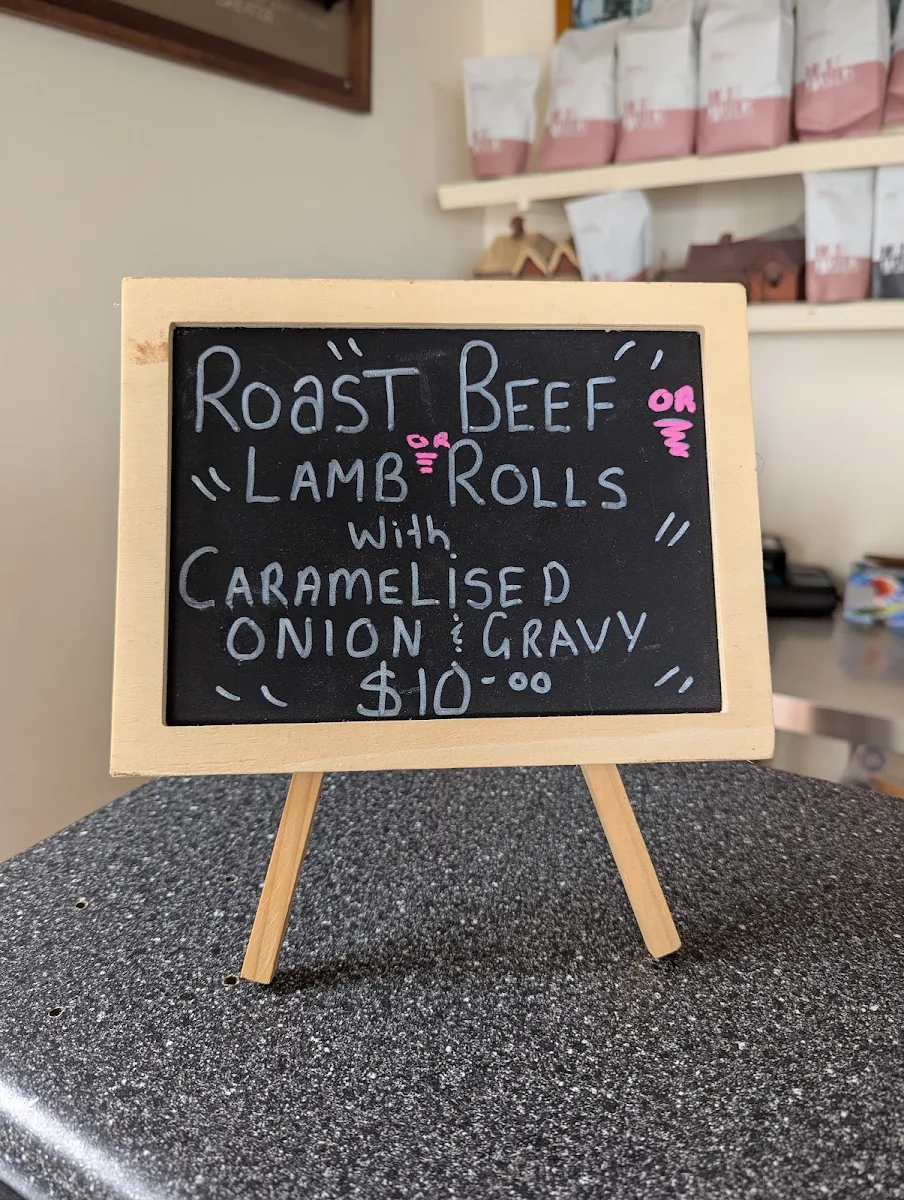 ROAST BEEF OR
LAMB OR ROLLS
With
CARAMELISED
ONION & GRAVY
$10-00